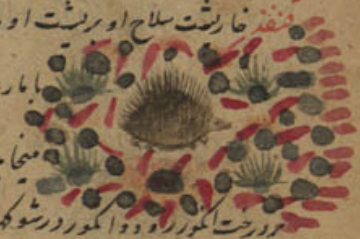 قنفذ خارپشت سلاح او بر پشت او
با مار
میخا
بر درخت انگور رود و انگور